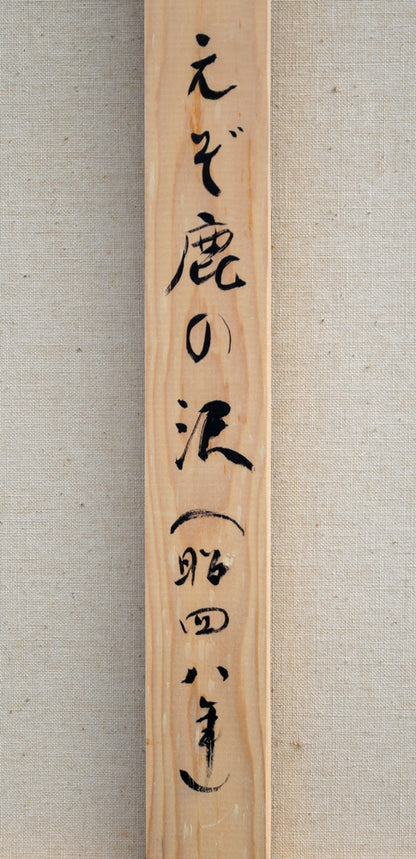 えぞ鹿の沢（昭四八年）